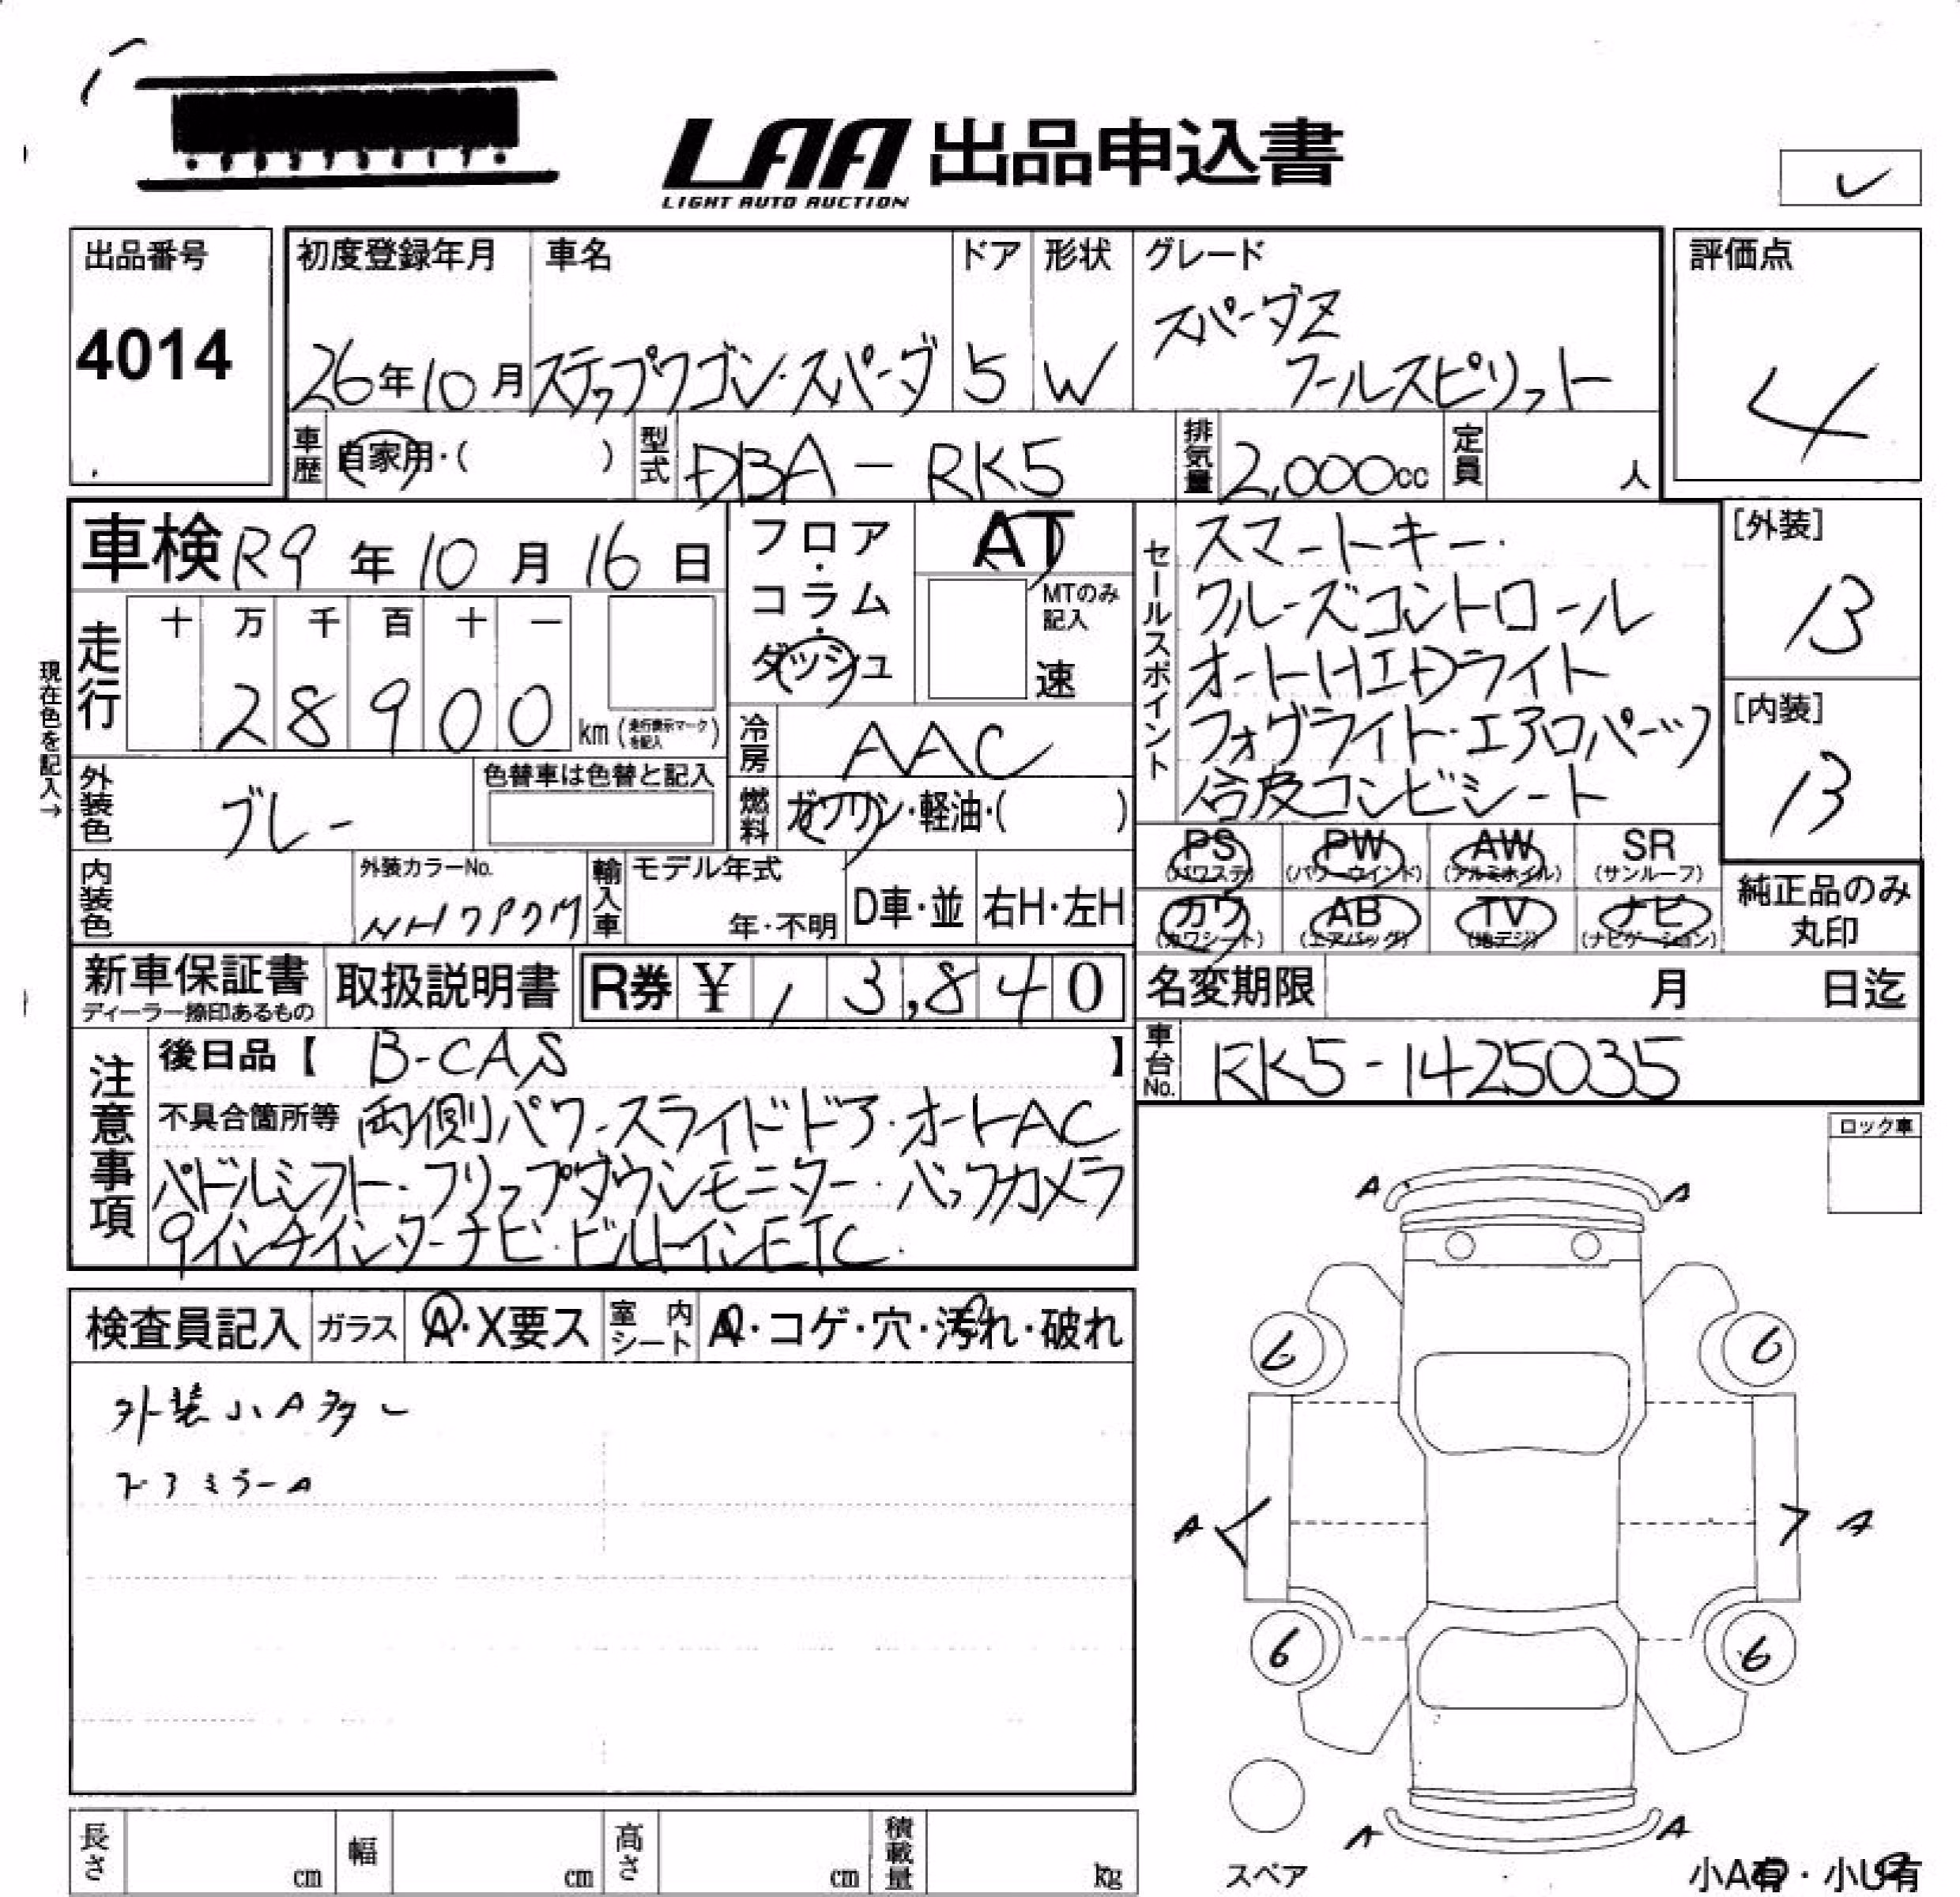 LAA 出品申込書
LIGHT AUTO AUCTION
出品番号
4014
初度登録年月 車名 ドア 形状 グレード
26年10月 ステップワゴン・スパーダ 5 W スパーダZ
クールスピリット
評価点
4
車歴 自家用・( ) 型式 DBA-RK5 排気量 2,000cc 定員 人
車検 R9年10月16日
フロア・コラム・ダッシュ
AT
MTのみ記入
速
セールスポイント
スマートキー・
クルーズコントロール
オートHIDライト
フォグライト・エアロパーツ
合皮コンビシート
[外装]
B
[内装]
B
走行 十 万 千 百 十 一
28900 km (走行表示マークを記入)
現在色を記入→
冷房 AAC
外装色 グレー 色替車は色替と記入
燃料 ガソリン・軽油・( )
PS (パワステ) PW (パワーウインド) AW (アルミホイル) SR (サンルーフ)
カワ (カワシート) AB (エアバッグ) TV (地デジ) ナビ (ナビゲーション)
純正品のみ丸印
内装色 外装カラーNo. 輸入車 モデル年式 年・不明 D車・並 右H・左H
NH797M
新車保証書 取扱説明書 R券 ¥ 13,840
ディーラー捺印あるもの
名変期限 月 日迄
車台No. RK5-1425035
注意事項
後日品【 B-CAS 】
不具合箇所等 両側パワースライドドア・オートAC
パドルシフト・フリップダウンモニター・バックカメラ
9インチインターナビ・ビルトインETC
ロック車
A A
検査員記入 ガラス A・X要ス 室内シート A・コゲ・穴・汚れ・破れ
外装小A多し
ドアミラーA
6 6
A A
6 6
A A
スペア
小A有・小U有
長さ cm 幅 cm 高さ cm 積載量 kg